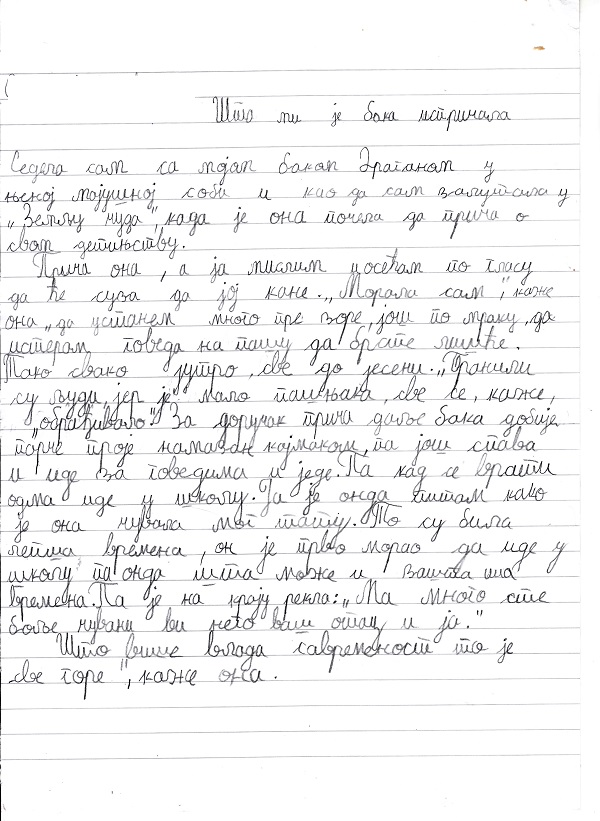 Што ми је бака испричала
Седела сам са мојом баком Драганом у
њеној мајушној соби и као да сам залутала у
„Земљу чуда", када је она почела да прича о
свом детињству.
Прича она, а ја мислим и осећам по гласу
да ће суза да јој кане. „Морала сам", каже
она „да устанем много пре зоре, још по мраку, да
истерам говеда на пашу да брате лишће.
Тако свако јутро, све до јесени. „Бранили
су људи, јер је мало пашњака, све се, каже,
„обрађивало." За доручак прича даље бака добије
парче проје намазан кајмаком, па још спава
и иде за говедима и једе. Па кад се врати
одма иде у школу. Ја је онда питам како
је она чувала мог тату. То су била
лепша времена, он је прво морао да иде у
школу па онда шта може и времена.
времена. Па је на крају рекла: „Ма много сте
боље чувани ви него ваш отац и ја."
Што више влада савременост то је
све горе", каже она.